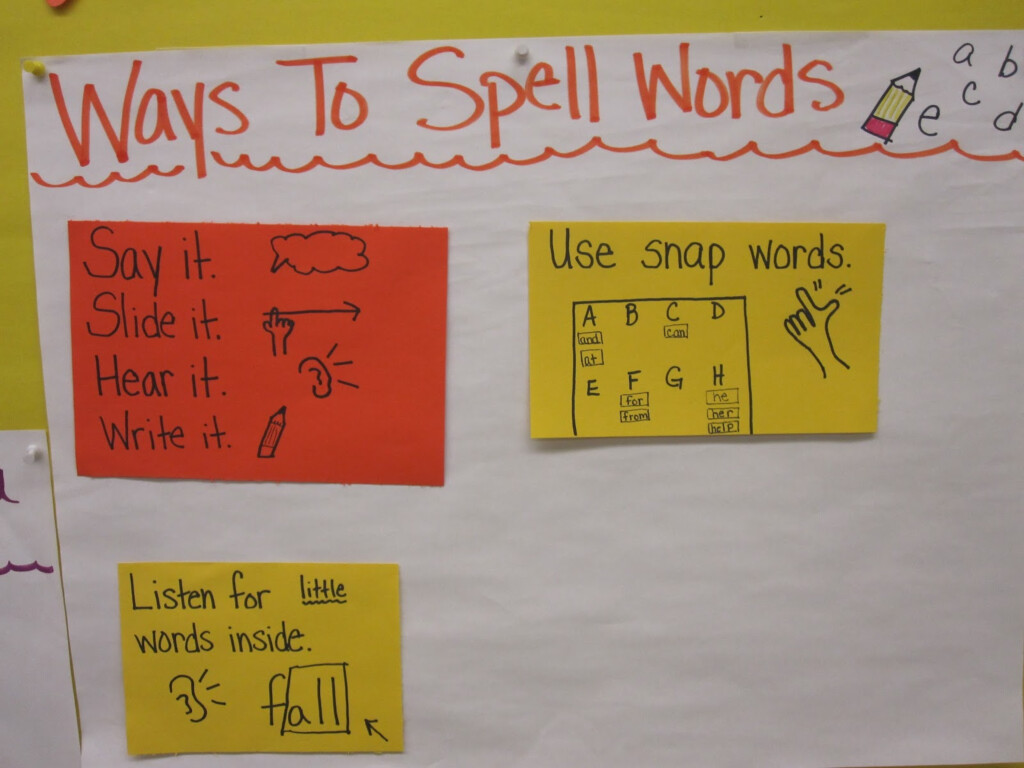 Ways To Spell Words
a b
c
e d
Say it.
Slide it.
Hear it.
Write it.
Use snap words.
A B C D
and can
at
E F G H
for he
from her
help
Listen for little
words inside.
fall